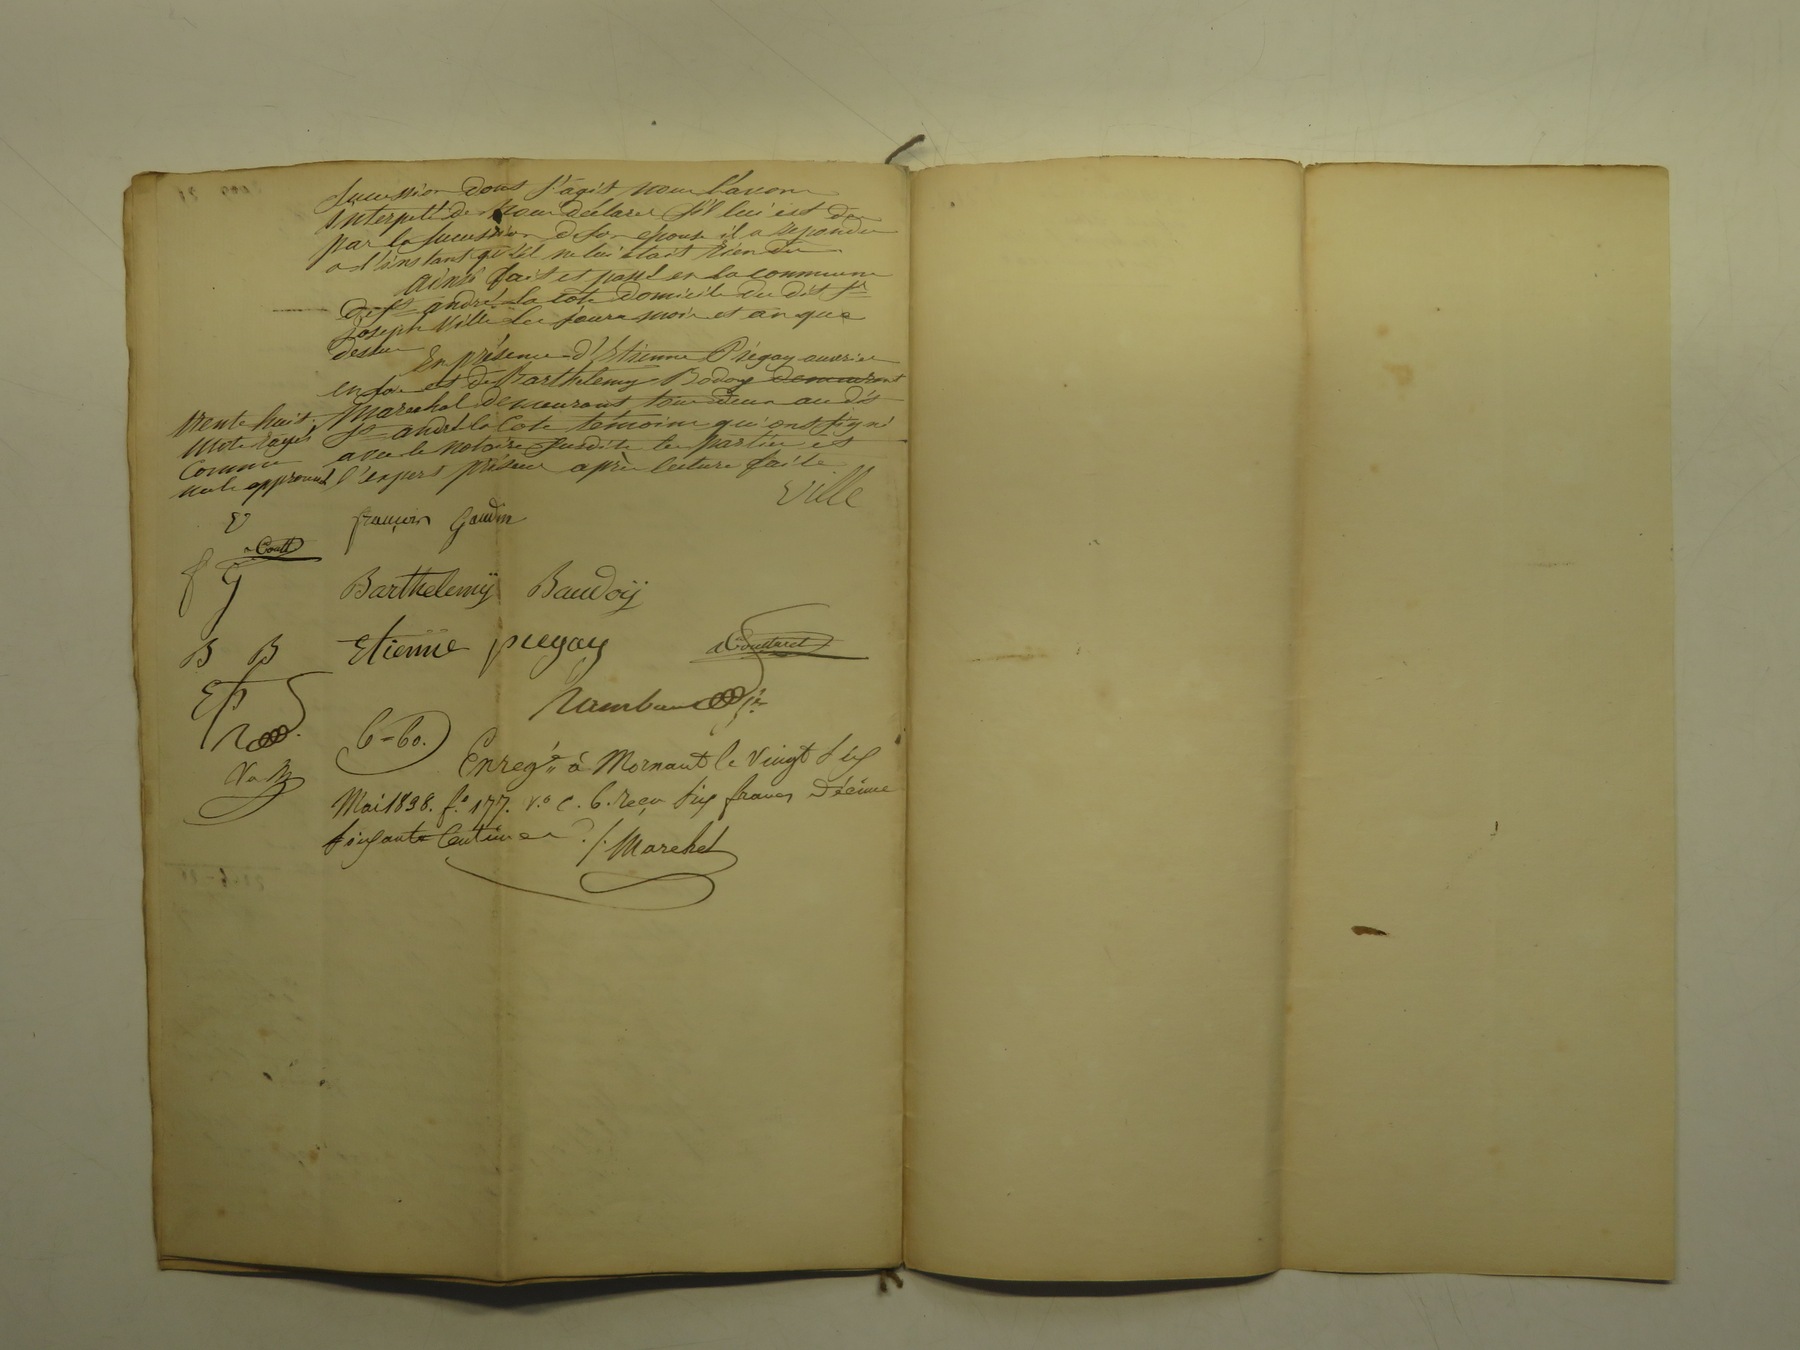 succession dont s'agit nous l'avons
interpellé de nous déclarer s'il lui est du
par la succession de son epouse il a repondu
a l'instant qu'il ne lui était rien du
ainsi fait et passé en la commune
de St andré la cote domicile du dit Sr
Joseph Ville les jours mois et an que
dessus
En présence d'Etienne Prégay ouvrier
en soie et de Barthelemy Bodoy demeurant
Marechal demeurants tous deux au dit
St andré la Cote temoins qui ont signé
avec le notaire susdits les parties et
l'expert priseur après lecture faite
trente huit
mots rayés
comme
nuls approuvés
Ville
V
françois Gaudin
f g
Barthelemÿ Baudoÿ
B B
Etienne pregay
EP
6=60.
Enreg.té à Mornant le vingt six
Mai 1838. f.o 177. v.o c. 6. reçu six francs Décime
soixante Centimes ./. Marchel